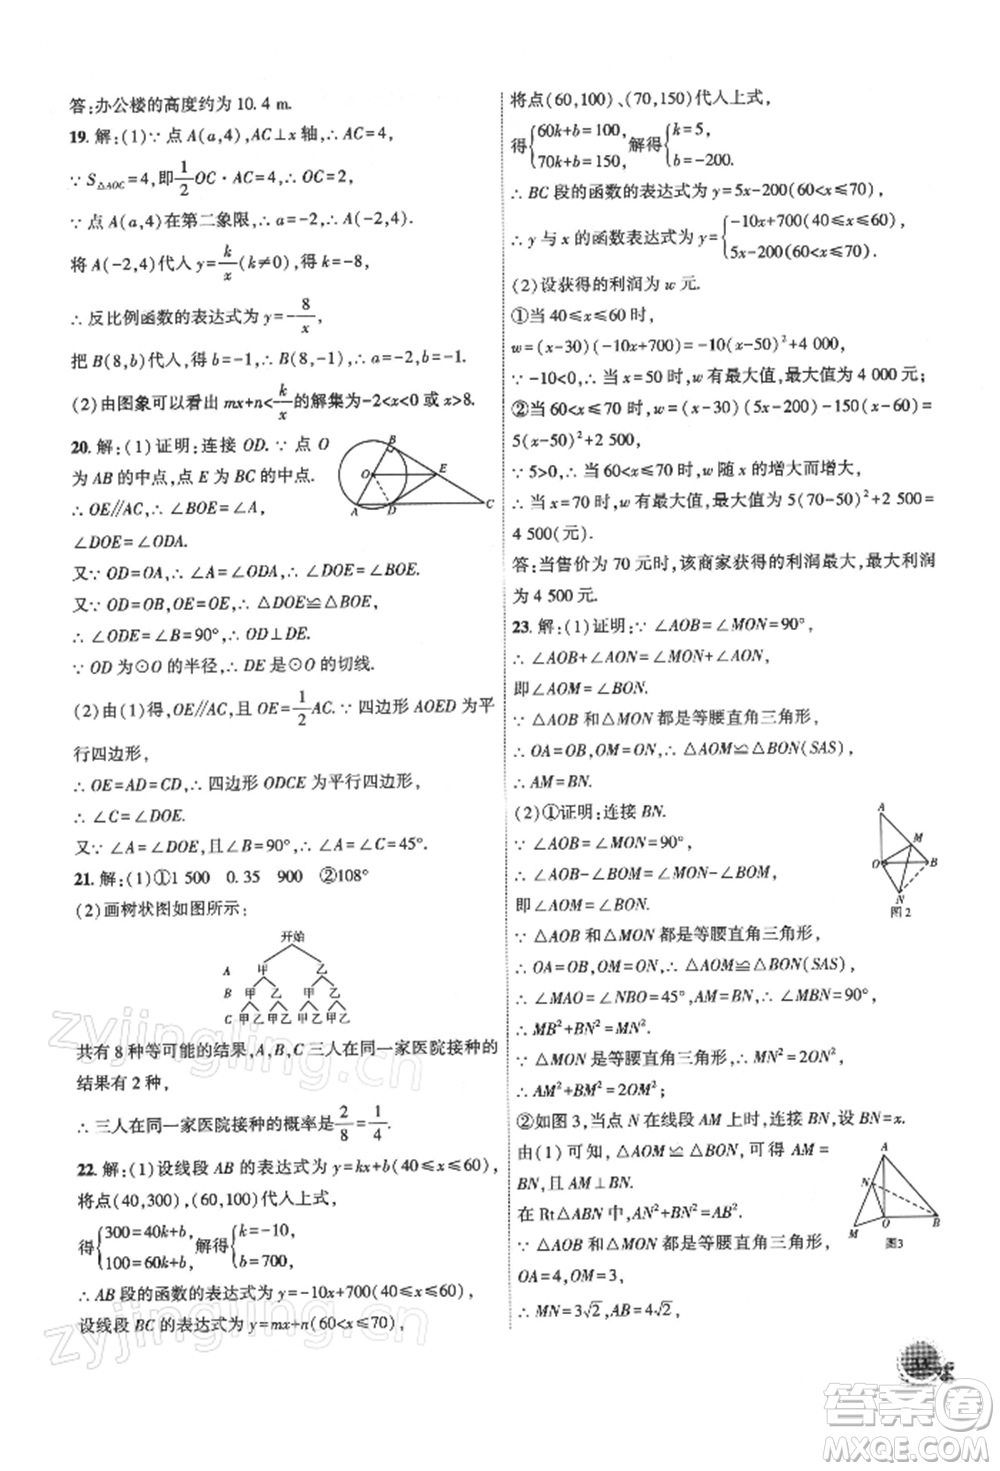 答:办公楼的高度约为 10.4 m.
19. 解:(1)∵ 点 A(a,4),AC⊥x 轴,∴ AC=4,
∵ S△AOC=4,即1/2 OC·AC=4,∴ OC=2,
∵ 点 A(a,4)在第二象限,∴ a=-2,∴ A(-2,4),
将 A(-2,4)代人 y=k/x(k≠0),得 k=-8,
∴ 反比例函数的表达式为 y=-8/x,
把 B(8,b)代人,得 b=-1,∴ B(8,-1),∴ a=-2,b=-1.
(2)由图象可以看出 mx+n<k/x 的解集为-2<x<0 或 x>8.
20. 解:(1)证明:连接 OD.∵ 点 O
为 AB 的中点,点 E 为 BC 的中点.
∴ OE∥AC,∴ ∠BOE=∠A,
∠DOE=∠ODA.
又∵ OD=OA,∴ ∠A=∠ODA,∴ ∠DOE=∠BOE.
又∵ OD=OB,OE=OE,∴ △DOE≌△BOE,
∴ ∠ODE=∠B=90°,∴ OD⊥DE.
∵ OD 为⊙O 的半径,∴ DE 是⊙O 的切线.
(2)由(1)得,OE∥AC,且 OE=1/2 AC.∵ 四边形 AOED 为平
行四边形,
∴ OE=AD=CD,∴ 四边形 ODCE 为平行四边形,
∴ ∠C=∠DOE.
又∵ ∠A=∠DOE,且∠B=90°,∴ ∠A=∠C=45°.
21. 解:(1)①1 500 0.35 900 ②108°
(2)画树状图如图所示:
开始
A 甲 乙
B 甲 乙 甲 乙
C 甲乙 甲乙 甲乙 甲乙
共有 8 种等可能的结果,A,B,C 三人在同一家医院接种的
结果有 2 种,
∴ 三人在同一家医院接种的概率是2/8=1/4.
22. 解:(1)设线段 AB 的表达式为 y=kx+b(40≤x≤60),
将点(40,300),(60,100)代人上式,
得{300=40k+b,解得{k=-10,
100=60k+b, b=700.
∴ AB 段的函数的表达式为 y=-10x+700(40≤x≤60),
设线段 BC 的表达式为 y=mx+n(60<x≤70),
将点(60,100)、(70,150)代人上式,
得{60k+b=100,解得{k=5,
70k+b=150, b=-200.
∴ BC 段的函数的表达式为 y=5x-200(60<x≤70),
∴ y 与 x 的函数表达式为 y={-10x+700(40≤x≤60),
5x-200(60<x≤70).
(2)设获得的利润为 w 元.
①当 40≤x≤60 时,
w=(x-30)(-10x+700)=-10(x-50)²+4 000,
∵ -10<0,∴ 当 x=50 时,w 有最大值,最大值为 4 000 元;
②当 60<x≤70 时,w=(x-30)(5x-200)-150(x-60)=
5(x-50)²+2 500,
∵ 5>0,∴ 当 60<x≤70 时,w 随 x 的增大而增大,
∴ 当 x=70 时,w 有最大值,最大值为 5(70-50)²+2 500=
4 500(元).
答:当售价为 70 元时,该商家获得的利润最大,最大利润
为 4 500 元.
23. 解:(1)证明:∵ ∠AOB=∠MON=90°,
∴ ∠AOB+∠AON=∠MON+∠AON,
即∠AOM=∠BON.
∵ △AOB 和△MON 都是等腰直角三角形,
∴ OA=OB,OM=ON,∴ △AOM≌△BON(SAS),
∴ AM=BN.
(2)①证明:连接 BN.
∵ ∠AOB=∠MON=90°,
∴ ∠AOB-∠BOM=∠MON-∠BOM,
即∠AOM=∠BON.
∵ △AOB 和△MON 都是等腰直角三角形,
∴ OA=OB,OM=ON,∴ △AOM≌△BON(SAS),
∴ ∠MAO=∠NBO=45°,AM=BN,∴ ∠MBN=90°,
∴ MB²+BN²=MN²,
∵ △MON 都是等腰直角三角形,∴ MN²=2OM²,
∴ AM²+BM²=2OM²;
②如图 3,当点 N 在线段 AM 上时,连接 BN,设 BN=x.
由(1)可知,△AOM≌△BON,可得 AM=
BN,且 AM⊥BN.
在 Rt△ABN 中,AN²+BN²=AB².
∵ △AOB 和△MON 都是等腰直角三角形,
OA=4,OM=3,
∴ MN=3√2,AB=4√2,
B
O
E
A
D
C
A
M
O
B
N
图 2
A
N
M
O
B
图3
zyjingling.cn
zyjingling.cn
答案卷
MXQE.COM